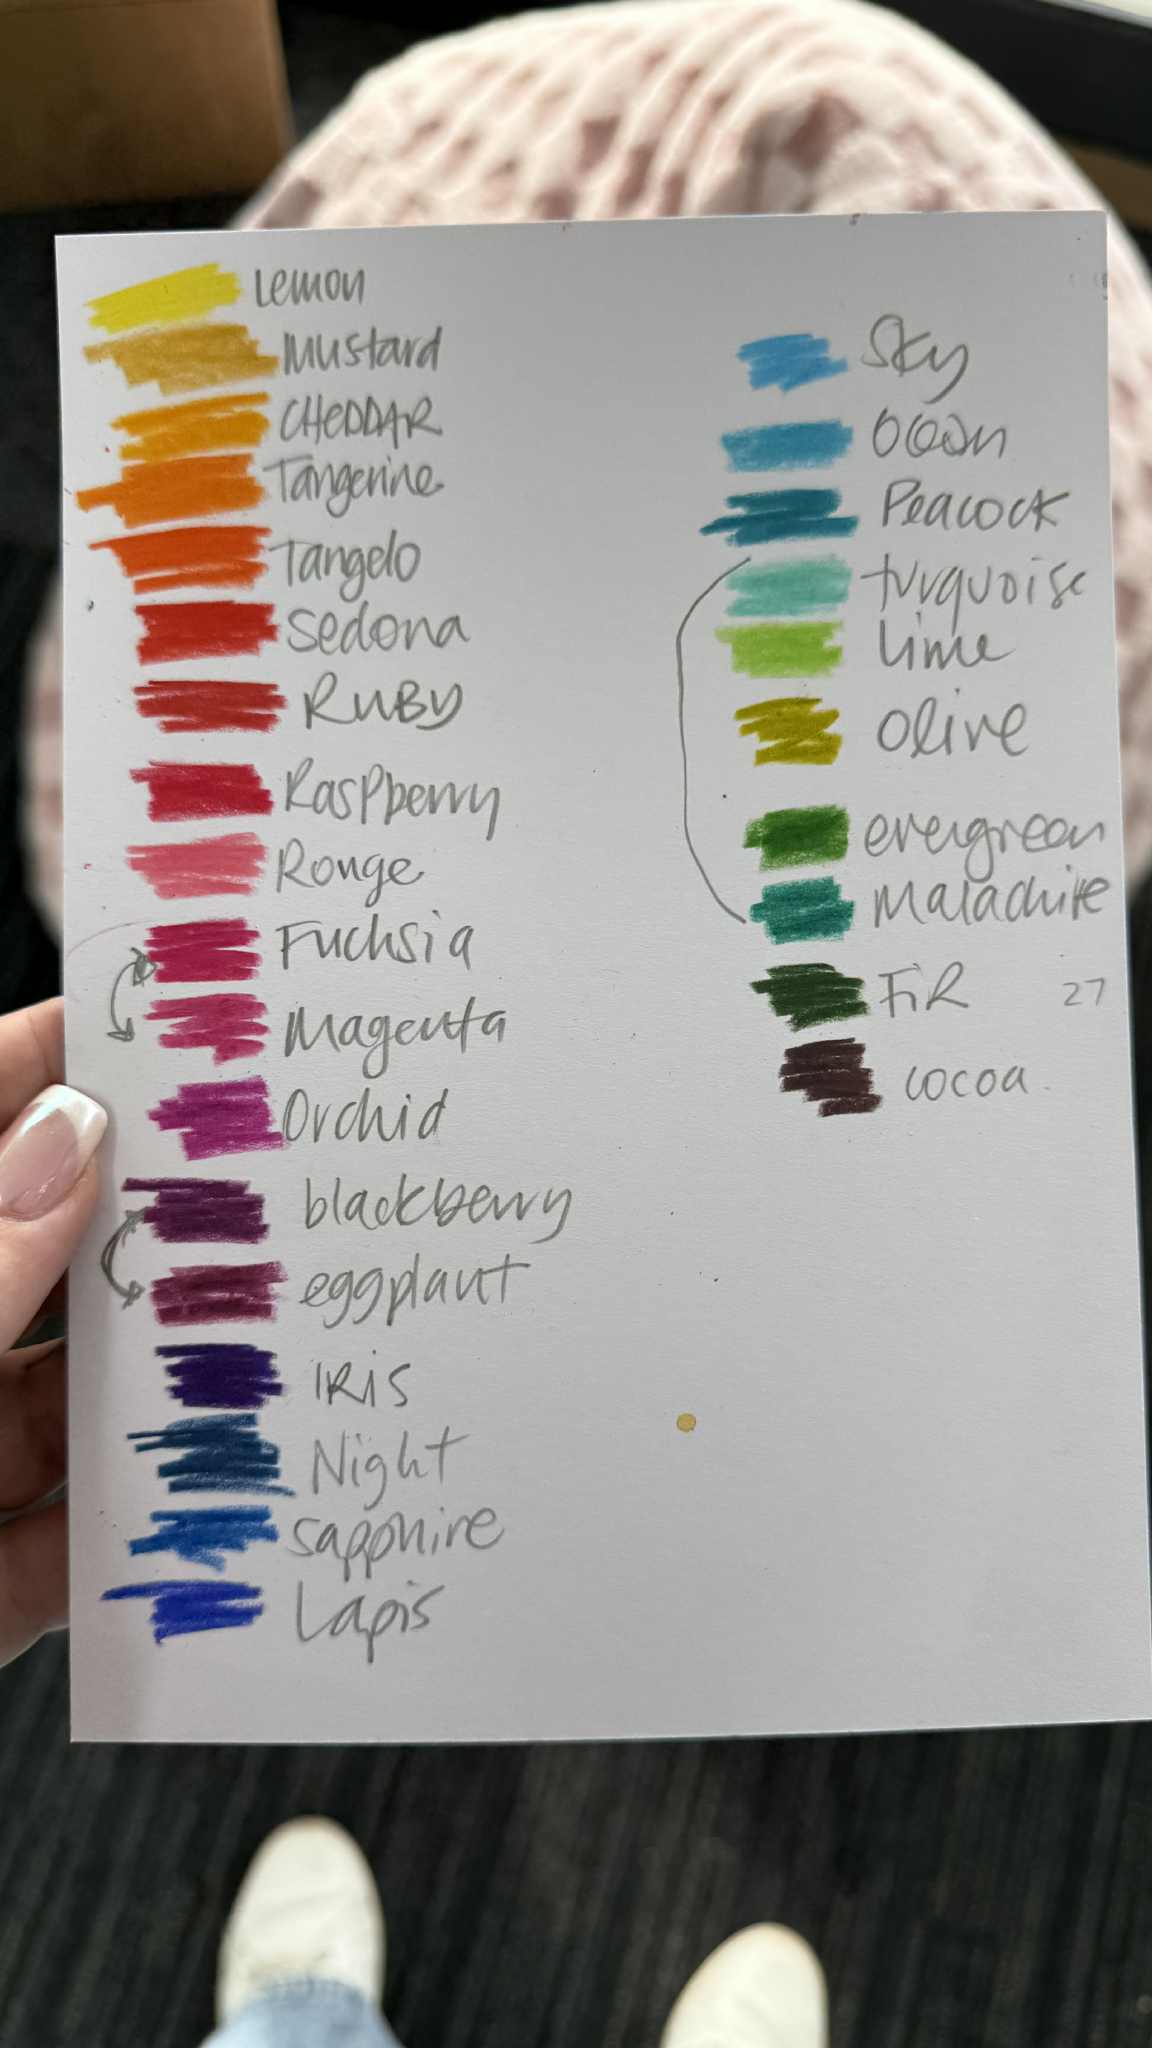 Lemon
Mustard
CHEDDAR
Tangerine
Tangelo
Sedona
RUBY
Raspberry
Rouge
Fuchsia
Magenta
Orchid
blackberry
eggplant
IRIS
Night
sapphire
Lapis
Sky
Ocean
Peacock
turquoise
Lime
Olive
evergreen
Malachite
FiR 27
cocoa